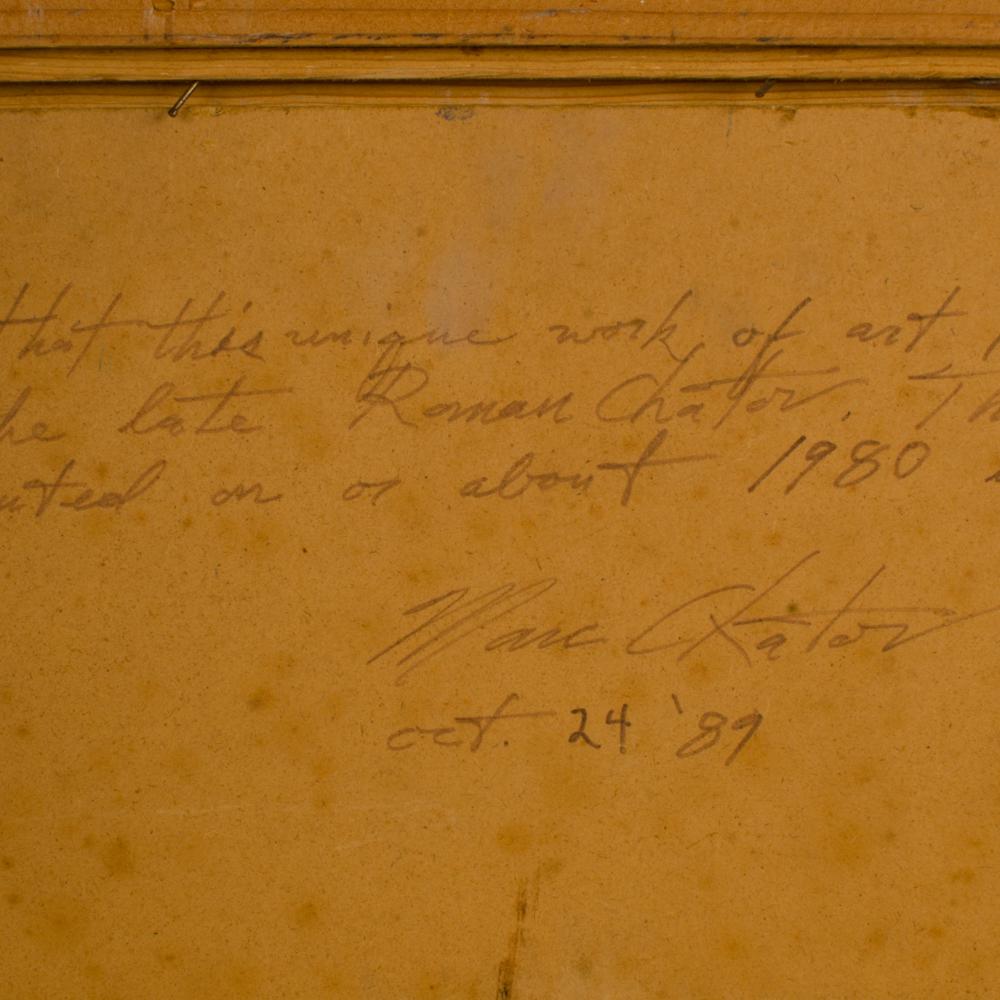 that this unique work of art
he late Roman Chator. Th
uted on or about 1980
Marc Chator
oct. 24 '89